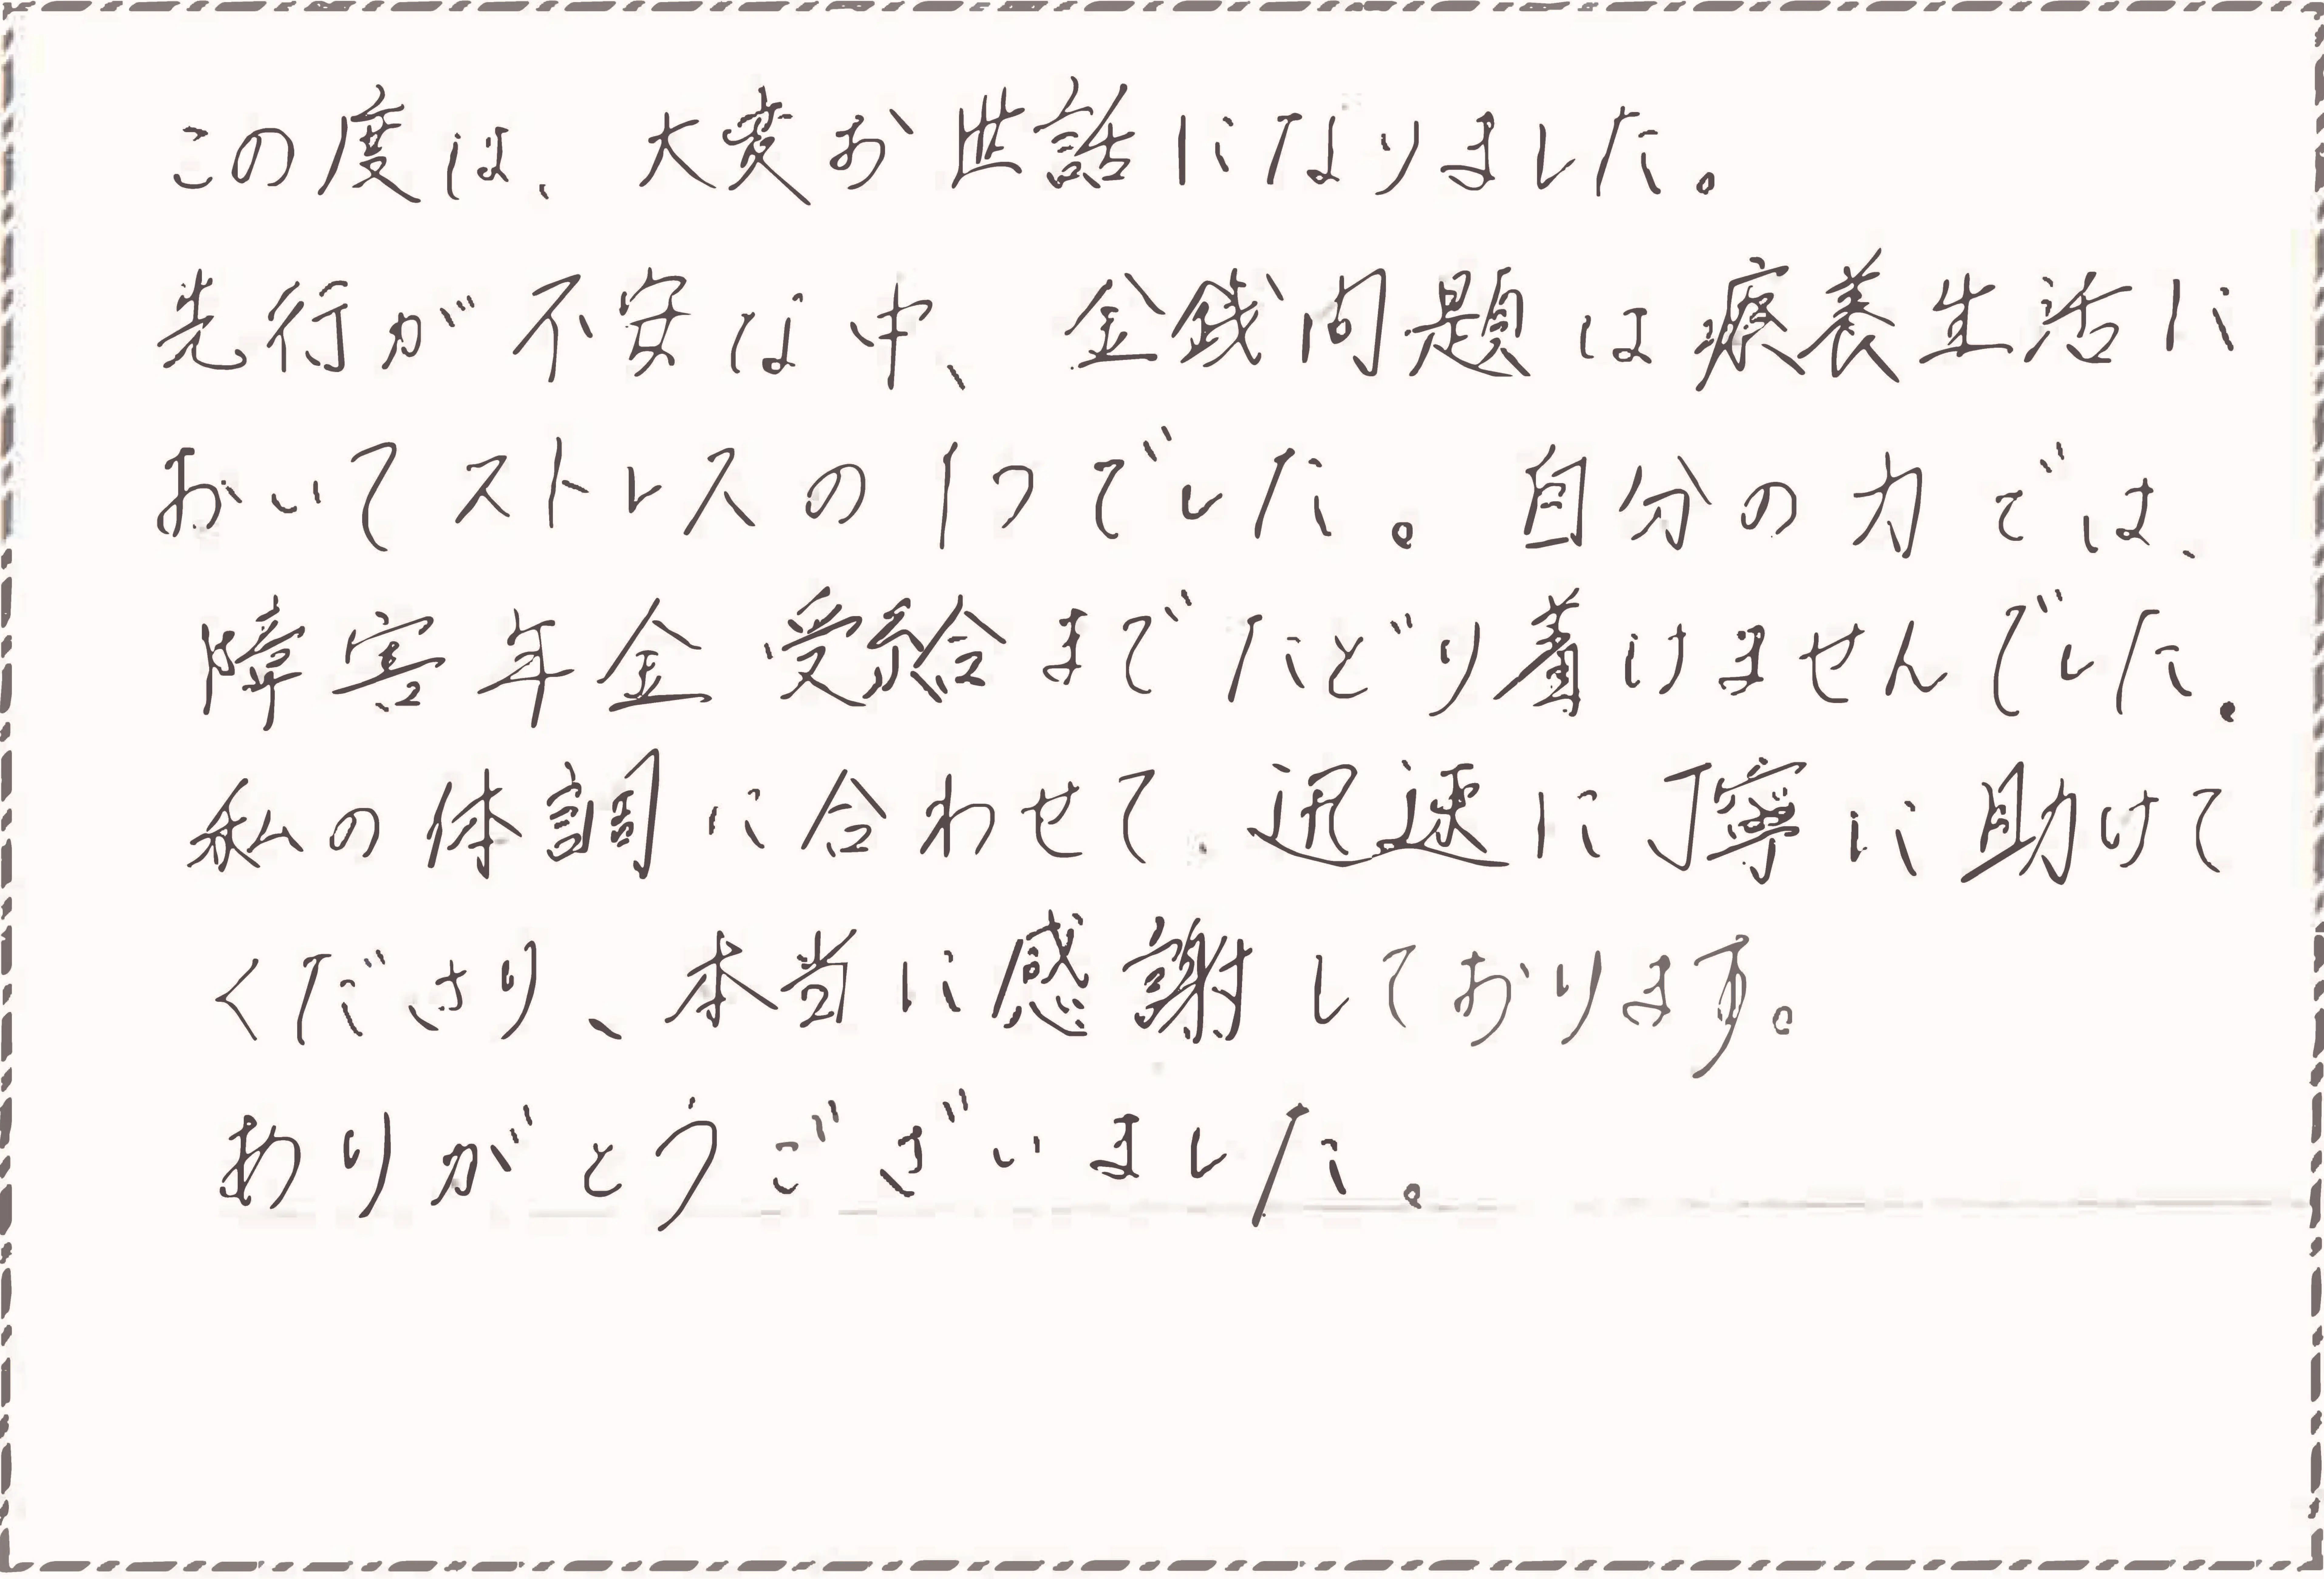 この度は、大変お世話になりました。
先行が不安な中、金銭問題は療養生活に
おいてストレスの1つでした。自分の力では、
障害年金受給までたどり着けませんでした。
私の体調に合わせて、迅速に丁寧に助けて
くださり、本当に感謝しております。
ありがとうございました。